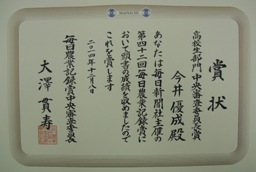 賞状
高校生部門 中央審査委員長賞
今井優成殿
あなたは毎日新聞社主催の
第四十二回毎日農業記録賞に
おいて頭書の成績を収めましたので
これを賞します
二〇一四年十二月八日
毎日農業記録賞中央審査委員長
大澤貫寿